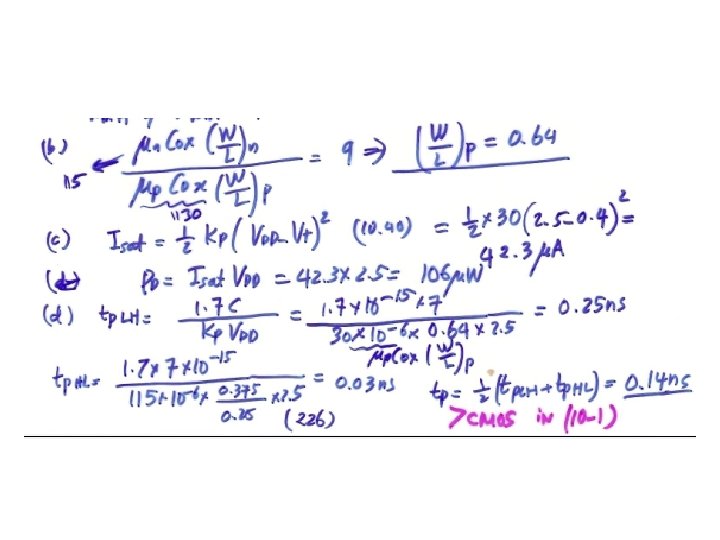 (b) 115 ← μn Cox (W/L)n / μp Cox (W/L)p = 9 ⇒ (W/L)p = 0.64
30
(c) Isat = 1/2 Kp (VDD - Vt)² (10.40) = 1/2 × 30 (2.5-0.4)² =
42.3 μA
PD = Isat VDD = 42.3 × 2.5 = 106 μW
(d) tPLH = 1.7 C / Kp VDD = 1.7 × 10^-15 × 7 / 30 × 10^-6 × 0.64 × 2.5 = 0.25 ns
μp Cox (W/L)p
tPHL = 1.7 × 7 × 10^-15 / 115 × 10^-6 × 0.375/0.25 × 2.5 = 0.03 ns tp = 1/2 (tPLH + tPHL) = 0.14 ns
(226) > CMOS in (10-1)